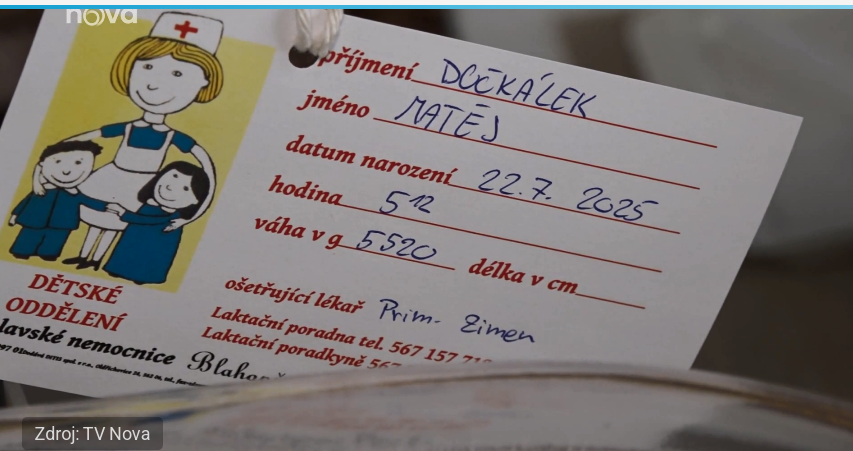 nova
příjmení DOČKÁLEK
jméno MATĚJ
datum narození 22.7. 2025
hodina 5 12
váha v g 5520 délka v cm
ošetřující lékař Prim. Zimen
Laktační poradna tel. 567 157
Laktační poradkyně 567
DĚTSKÉ
ODDĚLENÍ
lavské nemocnice
Zdroj: TV Nova